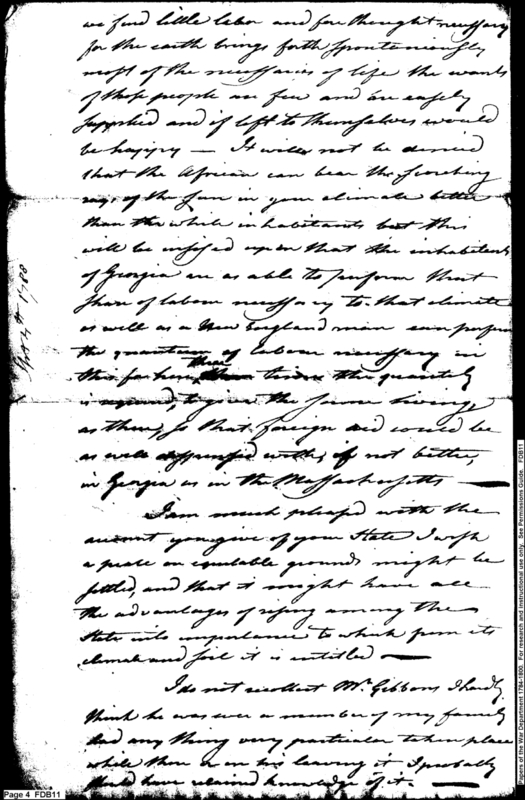 we find little labor and forethought necessary
for the earth brings forth spontaniously
most of the necessaries of life the wants
of those people are few and are easely
supplied and if left to themselves would
be happy — It will not be denied
that the African can bear the scorching
rays of the sun in your climate better
than the white inhabitants but this
will be insisted upon that the inhabitants
of Georgia are as able to perform that
share of labour necessary to that climate
as well as a New England man can perform
the quantum of labour necessary in
this for here three times the quantity
is required, to give the same living
as there, so that foreign aid could be
as well dispensed with, if not better,
in Georgia as in the Massachusetts —
I am much pleased with the
account you give of your State I wish
a peace on equitable grounds might be
settled, and that it might have all
the advantages of rising among the
States into importance to which from its
climate and soil it is entitled —
I do not recollect Mr. Gibbons I hardly
think he was ever a member of my family
had any thing very particular taken place
while there or on his leaving it I probably
should have retained knowledge of it. —
1788
Page 4 FDB11
Papers of the War Department 1784-1800. For research and instructional use only. See Permissions Guide. FDB11